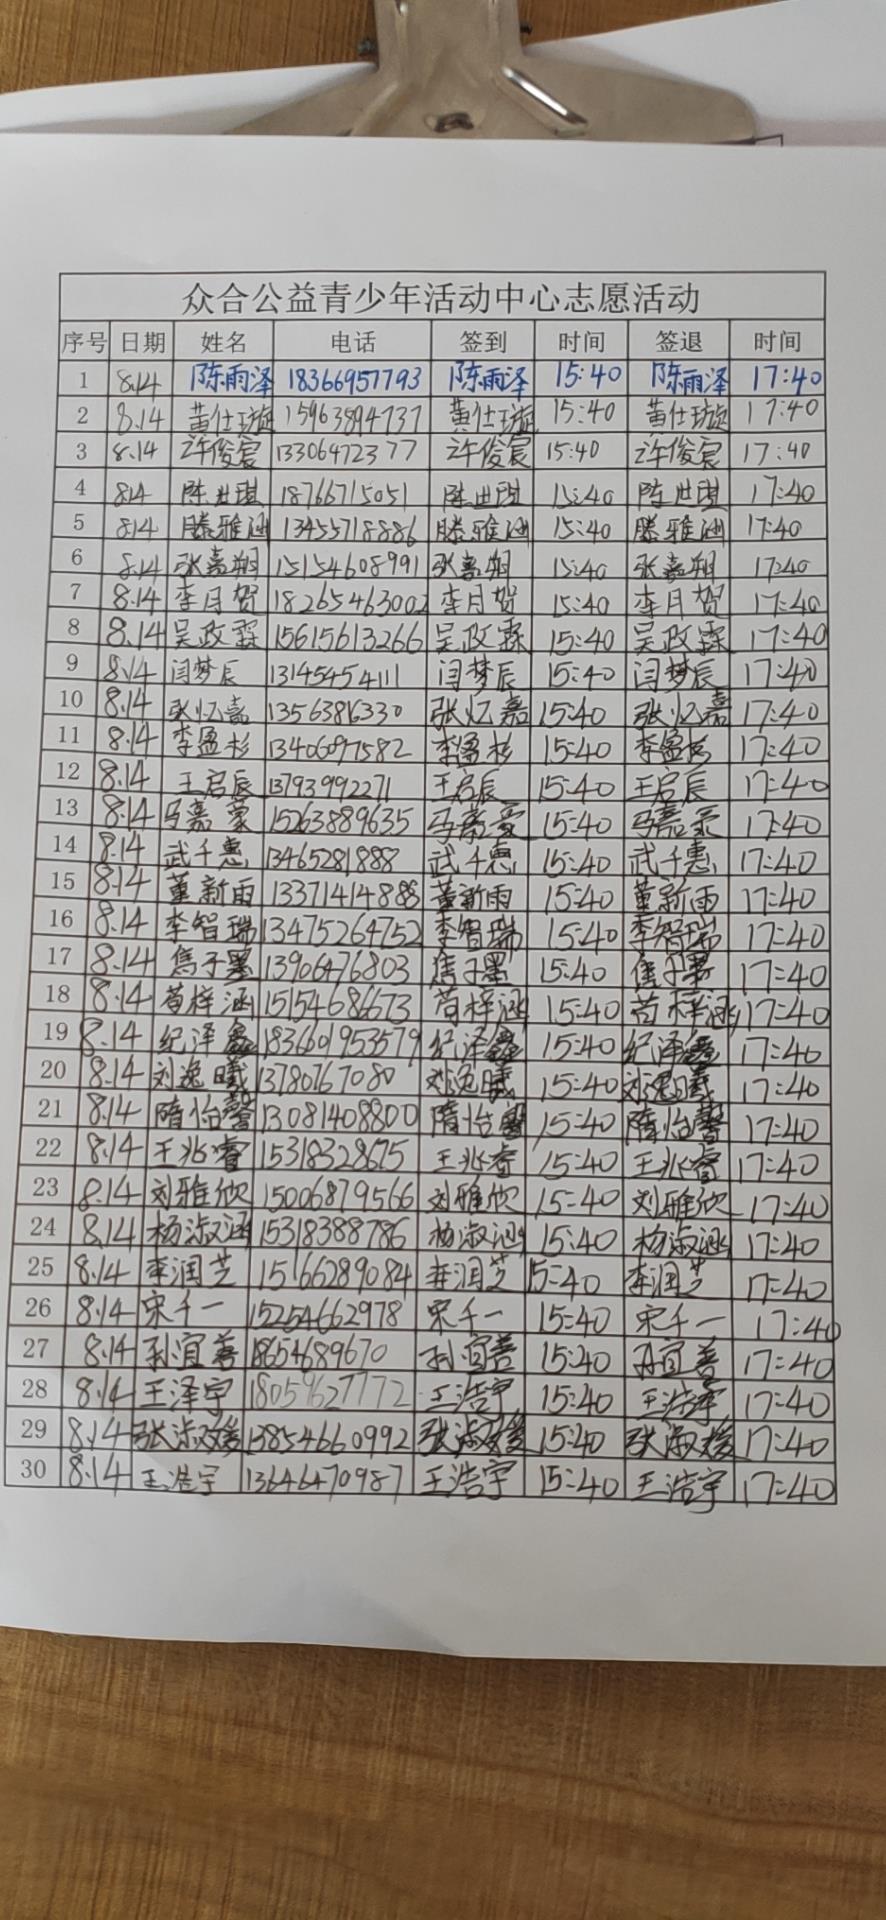 众合公益青少年活动中心志愿活动
序号 日期 姓名 电话 签到 时间 签退 时间
1 8.14 陈雨泽 18366957793 陈雨泽 15:40 陈雨泽 17:40
2 8.14 黄仕璇 15963894737 黄仕璇 15:40 黄仕璇 17:40
3 8.14 许俊宸 13306472377 许俊宸 15:40 许俊宸 17:40
4 8.14 陈世琪 18766715051 陈世琪 15:40 陈世琪 17:40
5 8.14 滕雅涵 13455718886 滕雅涵 15:40 滕雅涵 17:40
6 8.14 张嘉朔 15154608991 张嘉朔 15:40 张嘉朔 17:40
7 8.14 李月贺 18265463002 李月贺 15:40 李月贺 17:40
8 8.14 吴政霖 15615613266 吴政霖 15:40 吴政霖 17:40
9 8.14 闫梦辰 13145454111 闫梦辰 15:40 闫梦辰 17:40
10 8.14 张忆嘉 13563816330 张忆嘉 15:40 张忆嘉 17:40
11 8.14 李盈杉 13406097582 李盈杉 15:40 李盈杉 17:40
12 8.14 王启辰 13793992271 王启辰 15:40 王启辰 17:40
13 8.14 马嘉蒙 15263889635 马嘉蒙 15:40 马嘉蒙 17:40
14 8.14 武千惠 13465281888 武千惠 15:40 武千惠 17:40
15 8.14 董新雨 13371414888 董新雨 15:40 董新雨 17:40
16 8.14 李智瑞 13475264752 李智瑞 15:40 李智瑞 17:40
17 8.14 焦子墨 13906476803 焦子墨 15:40 焦子墨 17:40
18 8.14 苟梓涵 15154686673 苟梓涵 15:40 苟梓涵 17:40
19 8.14 纪泽鑫 183660195 3579 纪泽鑫 15:40 纪泽鑫 17:40
20 8.14 刘逸曦 13780767080 刘逸曦 15:40 刘逸曦 17:40
21 8.14 隋怡馨 13081408800 隋怡馨 15:40 隋怡馨 17:40
22 8.14 王兆睿 15318328675 王兆睿 15:40 王兆睿 17:40
23 8.14 刘雅欣 15006879566 刘雅欣 15:40 刘雅欣 17:40
24 8.14 杨淑涵 15318388786 杨淑涵 15:40 杨淑涵 17:40
25 8.14 李润芝 15166289084 李润芝 15:40 李润芝 17:40
26 8.14 宋千一 15254662978 宋千一 15:40 宋千一 17:40
27 8.14 孙宜善 18654689670 孙宜善 15:40 孙宜善 17:40
28 8.14 王泽宇 18059627772 王浩宇 15:40 王浩宇 17:40
29 8.14 张淑媛 13854660992 张淑媛 15:40 张淑媛 17:40
30 8.14 王浩宇 13646470987 王浩宇 15:40 王浩宇 17:40